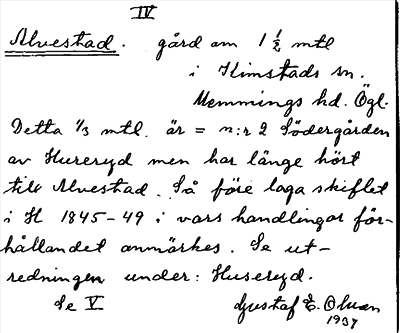 IV
Alvestad. gård om 1 1/2 mtl
i Kimstads sn.
Memmings hd. Ögl.
Detta 1/3 mtl. är = n:r 2 Södergården
av Husereyd men har länge hört
till Alvestad. Så före laga skiftet
i H 1845-49 i vars handlingar för-
hållandet anmärkes. Se ut-
redningen under: Husereyd.
Se V Gustaf E. Olsson
1937